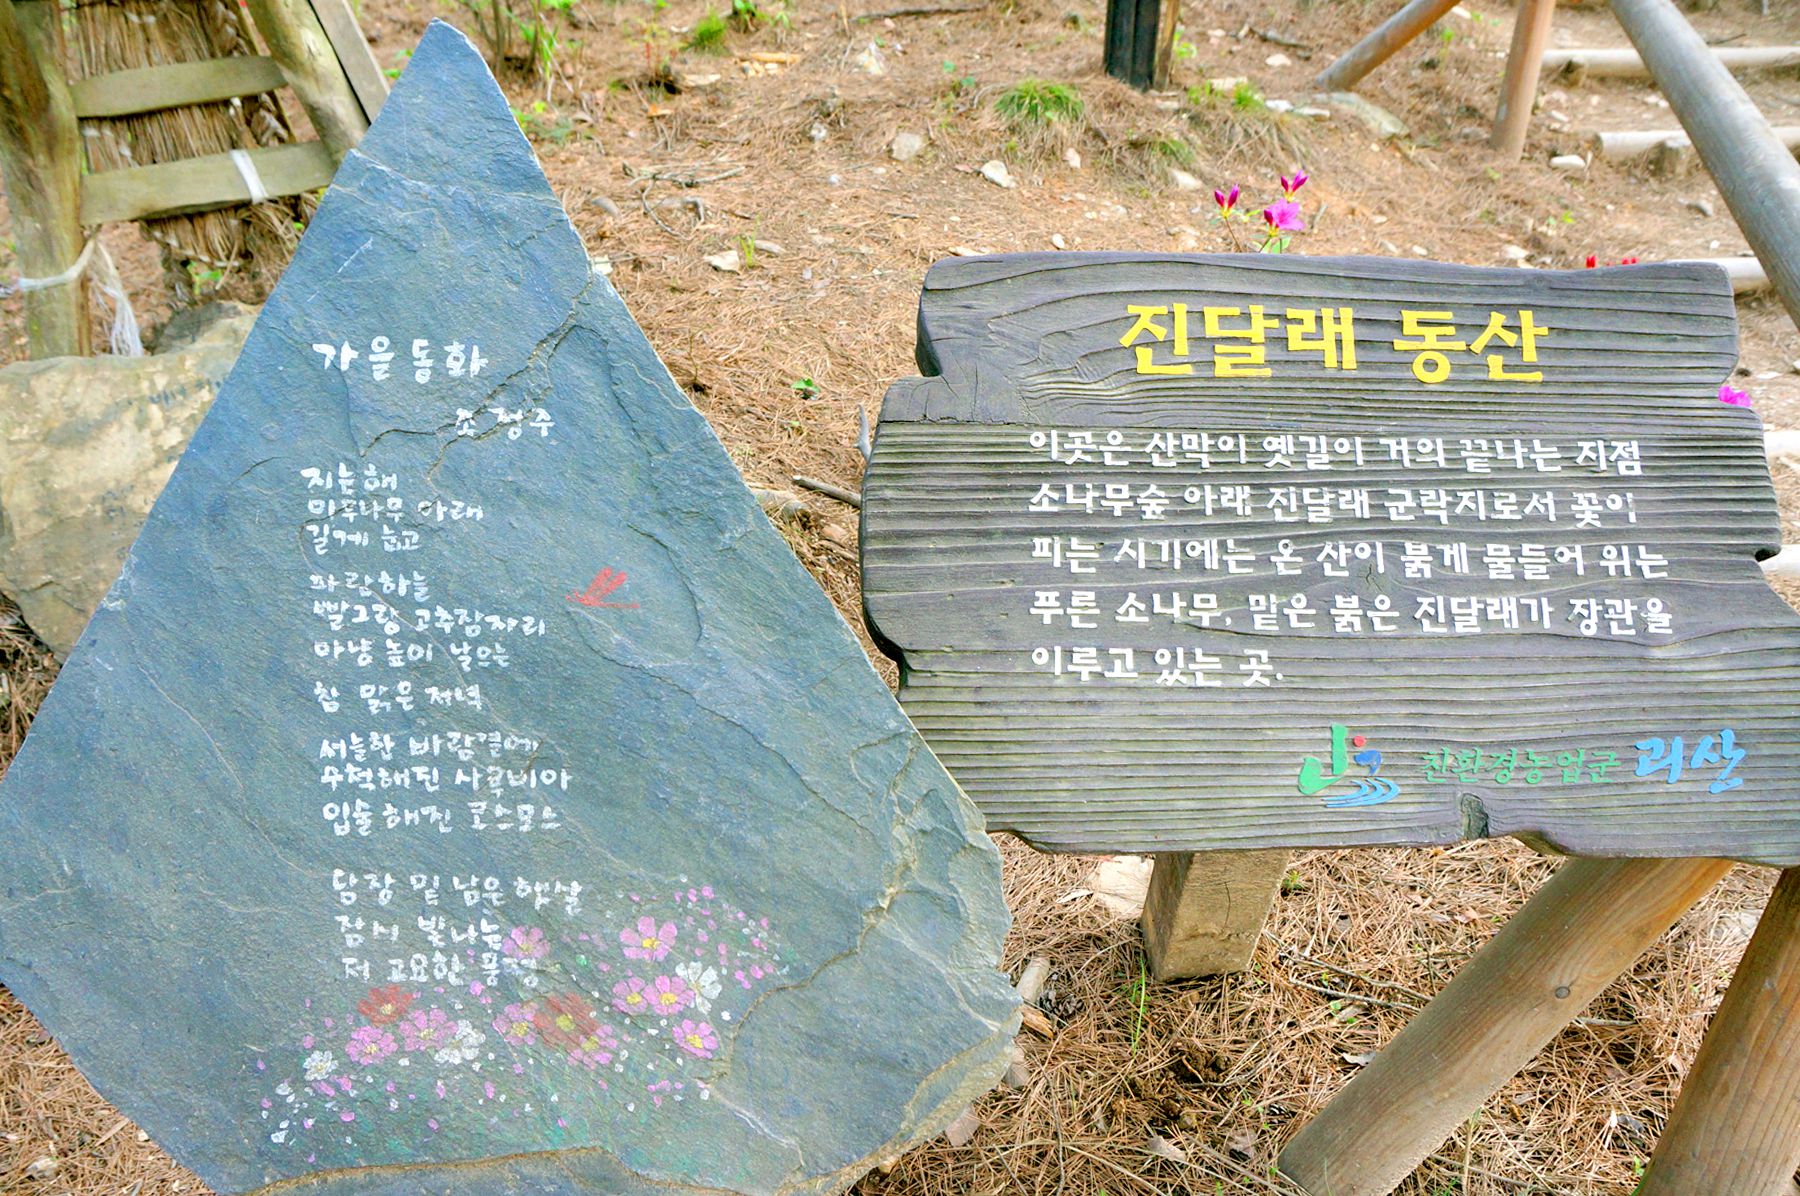 가을동화
조정주
지는 해
미루나무 아래
길게 눕고
파란하늘
빨그랑 고추잠자리
마냥 높이 날으는
참 맑은 저녁
서늘한 바람결에
수척해진 사루비아
입술해진 코스모스
담장 밑 남은 햇살
잠시 빛나는
저 고요한 풍경
진달래 동산
이곳은 산막이 옛길이 거의 끝나는 지점
소나무숲 아래 진달래 군락지로서 꽃이
피는 시기에는 온 산이 붉게 물들어 위는
푸른 소나무, 밑은 붉은 진달래가 장관을
이루고 있는 곳.
친환경농업군 괴산